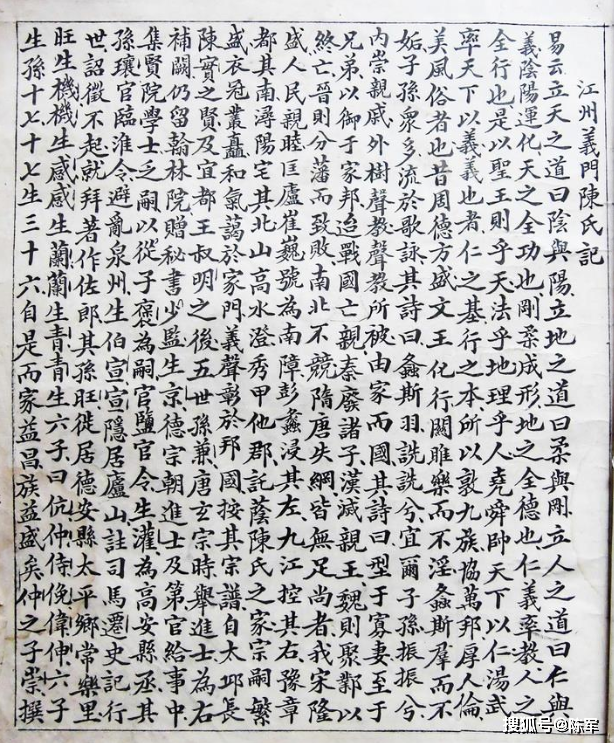 江州義門陳氏記
易云立天之道曰陰與陽立地之道曰柔與剛立人之道曰仁與
義陰陽運化天之全功也剛柔成形地之全德也仁義率教人之
全行也是以聖王則乎天法乎地理乎人堯舜帥天下以仁湯武
率天下以義義也者仁之基行之本所以敦九族協萬邦厚人倫
美風俗者也昔周德方盛文王化行關雎樂而不淫螽斯羣而不
妬子孫衆多流於歌詠其詩曰螽斯羽詵詵兮宜爾子孫振振兮
内崇親戚外樹聲教聲教所被由家而國其詩曰型于寡妻至于
兄弟以御于家邦迨戰國亡親秦廢諸子漢減親王魏則聚鄴以
終亡晉則分藩而致敗南北不競隋唐失綱皆無足尚者我宋隆
盛人民親睦匡廬崔巍號為南障彭蠡浸其左九江控其右豫章
都其南潯陽宅其北山高水澄秀甲他郡託蔭陳氏之家宗嗣繁
盛衣冠叢矗和氣藹於家門義聲彰於邦國按其宗譜自太邱長
陳實之賢及宜都王叔明之後五世孫兼唐玄宗時舉進士為右
補闕仍留翰林院贈秘書少監生京德宗朝進士及第官給事中
集賢院學士乏嗣以從子褒為嗣官鹽官令生灌為高安縣丞其
孫瓌官臨淮令避亂泉州生伯宣宣隱居廬山註司馬遷史記行
世詔徵不起就拜著作佐郎其孫旺徙居德安縣太平鄉常樂里
旺生機機生感感生蘭蘭生青青生六子曰伉仲侍俛偉伸六子
生孫十七十七生三十六自是而家益昌族益盛矣仲之子崇撰
搜狐号@陈军